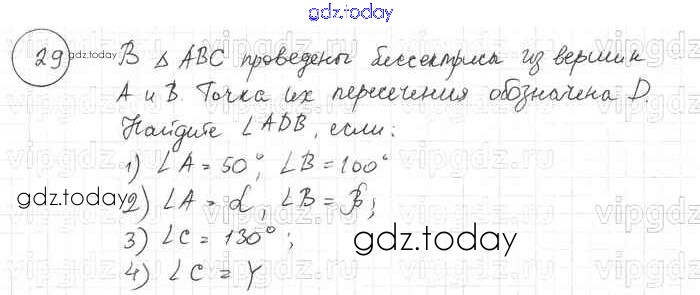 gdz.today
29 gdz.today В △ ABC проведены биссектрисы из вершин
A и B. Точка их пересечения обозначена D.
Найдите ∠ADB, если:
1) ∠A = 50°, ∠B = 100°
gdz.today
2) ∠A = α, ∠B = β;
3) ∠C = 130°;
gdz.today
4) ∠C = γ